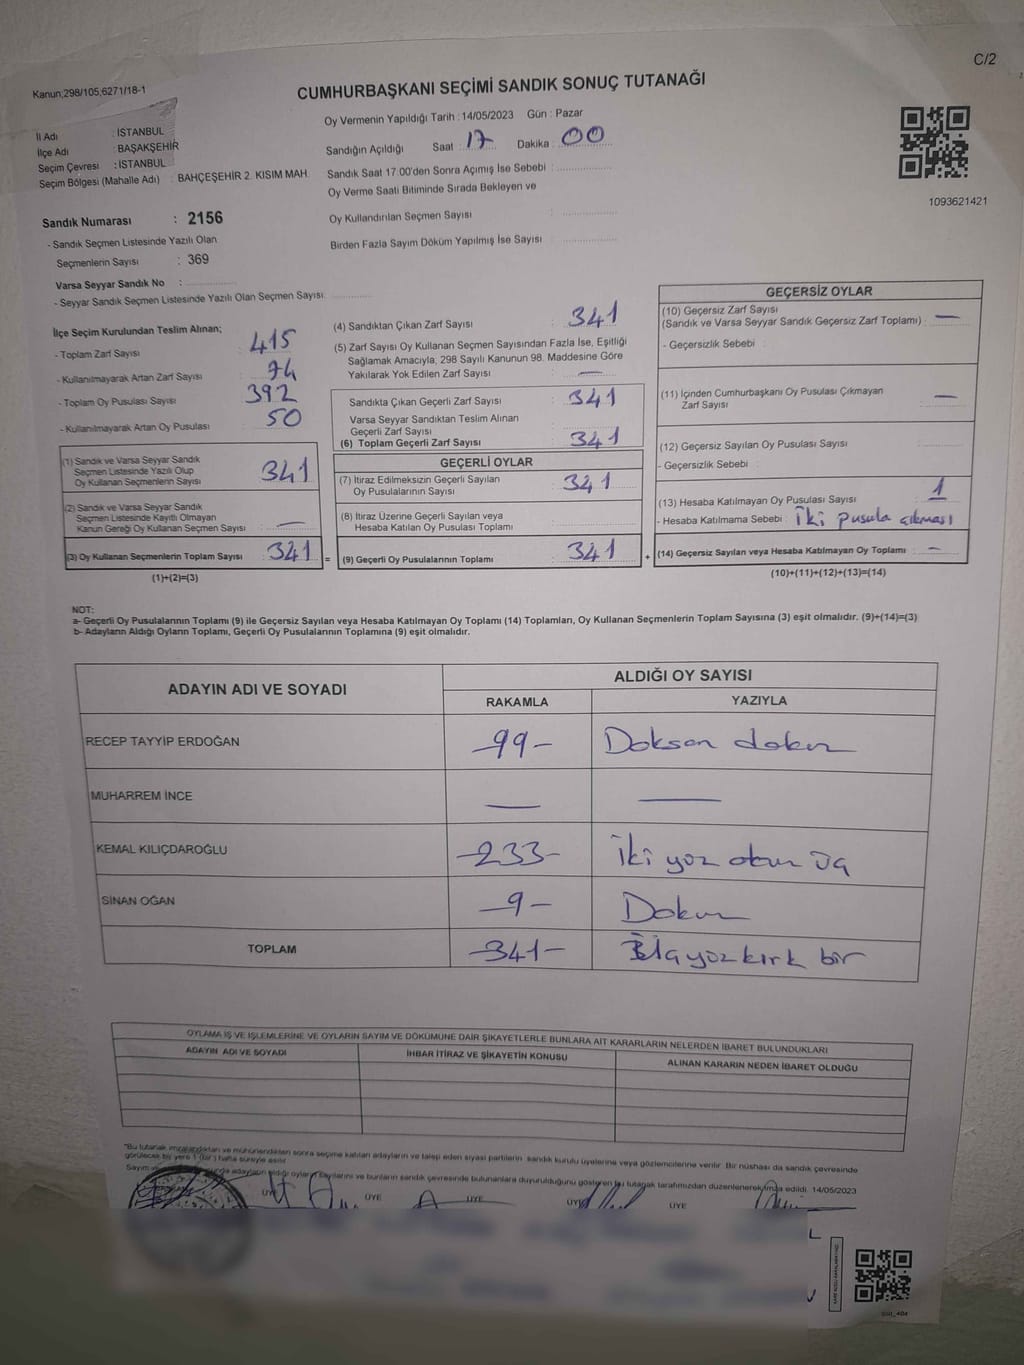 C/2
Kanun;298/105,6271/18-1
CUMHURBAŞKANI SEÇİMİ SANDIK SONUÇ TUTANAĞI
İl Adı : İSTANBUL
İlçe Adı : BAŞAKŞEHİR
Seçim Çevresi : İSTANBUL
Seçim Bölgesi (Mahalle Adı) : BAHÇEŞEHİR 2. KISIM MAH.
Oy Vermenin Yapıldığı Tarih : 14/05/2023 Gün : Pazar
Sandığın Açıldığı Saat : 17 Dakika : 00
Sandık Saat 17.00'den Sonra Açımış İse Sebebi :
Oy Verme Saati Bitiminde Sırada Bekleyen ve
Oy Kullandırılan Seçmen Sayısı :
Birden Fazla Sayım Döküm Yapılmış İse Sayısı :
1093621421
Sandık Numarası : 2156
- Sandık Seçmen Listesinde Yazılı Olan
Seçmenlerin Sayısı : 369
Varsa Seyyar Sandık No :
- Seyyar Sandık Seçmen Listesinde Yazılı Olan Seçmen Sayısı:
İlçe Seçim Kurulundan Teslim Alınan;
- Toplam Zarf Sayısı : 415
- Kullanılmayarak Artan Zarf Sayısı : 74
- Toplam Oy Pusulası Sayısı : 392
- Kullanılmayarak Artan Oy Pusulası : 50
(1) Sandık ve Varsa Seyyar Sandık
Seçmen Listesinde Yazılı Olup
Oy Kullanan Seçmenlerin Sayısı : 341
(2) Sandık ve Varsa Seyyar Sandık
Seçmen Listesinde Kayıtlı Olmayan
Kanun Gereği Oy Kullanan Seçmen Sayısı : —
(3) Oy Kullanan Seçmenlerin Toplam Sayısı : 341
(1)+(2)=(3)
(4) Sandıktan Çıkan Zarf Sayısı : 341
(5) Zarf Sayısı Oy Kullanan Seçmen Sayısından Fazla İse, Eşitliği
Sağlamak Amacıyla, 298 Sayılı Kanunun 98. Maddesine Göre
Yakılarak Yok Edilen Zarf Sayısı : —
Sandıkta Çıkan Geçerli Zarf Sayısı : 341
Varsa Seyyar Sandıktan Teslim Alınan
Geçerli Zarf Sayısı :
(6) Toplam Geçerli Zarf Sayısı : 341
GEÇERLİ OYLAR
(7) İtiraz Edilmeksizin Geçerli Sayılan
Oy Pusulalarının Sayısı : 341
(8) İtiraz Üzerine Geçerli Sayılan veya
Hesaba Katılan Oy Pusulası Toplamı :
= (9) Geçerli Oy Pusulalarının Toplamı : 341 +
GEÇERSİZ OYLAR
(10) Geçersiz Zarf Sayısı
(Sandık ve Varsa Seyyar Sandık Geçersiz Zarf Toplamı) : —
- Geçersizlik Sebebi :
(11) İçinden Cumhurbaşkanı Oy Pusulası Çıkmayan
Zarf Sayısı : —
(12) Geçersiz Sayılan Oy Pusulası Sayısı :
- Geçersizlik Sebebi :
(13) Hesaba Katılmayan Oy Pusulası Sayısı : 1
- Hesaba Katılmama Sebebi : İki pusula çıkması
(14) Geçersiz Sayılan veya Hesaba Katılmayan Oy Toplamı : —
(10)+(11)+(12)+(13)=(14)
NOT:
a- Geçerli Oy Pusulalarının Toplamı (9) ile Geçersiz Sayılan veya Hesaba Katılmayan Oy Toplamı (14) Toplamları, Oy Kullanan Seçmenlerin Toplam Sayısına (3) eşit olmalıdır. (9)+(14)=(3)
b- Adayların Aldığı Oyların Toplamı, Geçerli Oy Pusulalarının Toplamına (9) eşit olmalıdır.
ADAYIN ADI VE SOYADI ALDIĞI OY SAYISI
RAKAMLA YAZIYLA
RECEP TAYYİP ERDOĞAN -99- Doksan dokuz
MUHARREM İNCE — —
KEMAL KILIÇDAROĞLU -233- İki yüz otuz üç
SİNAN OĞAN -9- Dokuz
TOPLAM -341- Üçyüz kırk bir
OYLAMA İŞ VE İŞLEMLERİNE VE OYLARIN SAYIM VE DÖKÜMÜNE DAİR ŞİKAYETLERLE BUNLARA AİT KARARLARIN NELERDEN İBARET BULUNDUKLARI
ADAYIN ADI VE SOYADI İHBAR İTİRAZ VE ŞİKAYETİN KONUSU ALINAN KARARIN NEDEN İBARET OLDUĞU
"Bu tutanak imzalandıktan ve mühürlendikten sonra seçime katılan adayların ve talep eden siyasi partilerin sandık kurulu üyelerine veya gözlemcilerine verilir. Bir nüshası da sandık çevresinde
görülecek bir yere 1 (bir) hafta süreyle asılır.
Sayım ve adayların aldığı oyların sayılarını ve bunların sandık çevresinde bulunanlara duyurulduğunu gösteren bu tutanak tarafımızdan düzenlenerek imza edildi. 14/05/2023
ÜYE ÜYE ÜYE ÜYE ÜYE